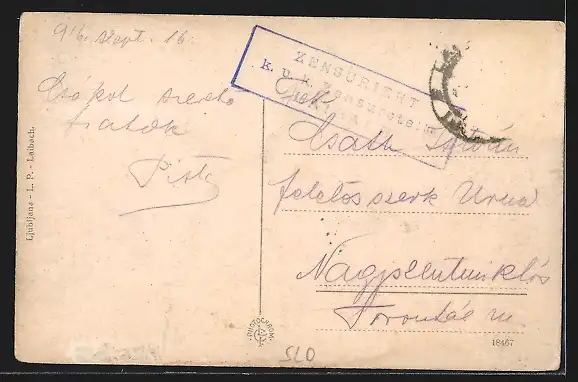 916. szept. 16.
Csókol szerető
fiatok
Pista
ZENSURIERT
K. u. k. Zensurstelle
Csáth István
felelős szerk Urnak
Nagyszentmiklós
Torontál m.
Ljubljana - L. P. - Laibach.
PHOTOCHROM
18467
SLO